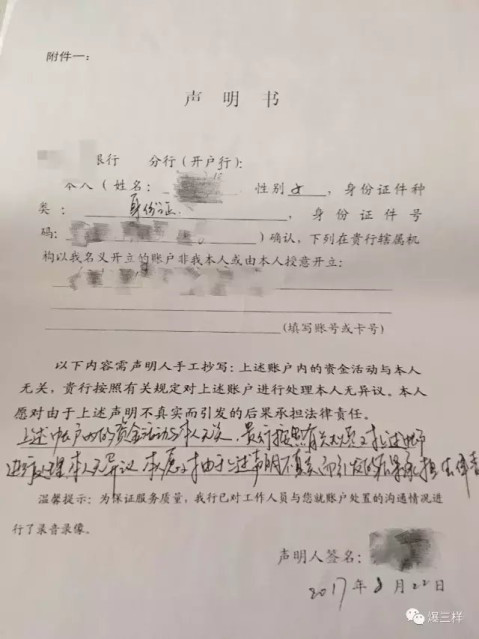 附件一：
声 明 书
银行 分行（开户行）：
本人（姓名： 性别 女 ，身份证件种
类： 身份证 ，身份证件号
码： ）确认，下列在贵行辖属机
构以我名义开立的账户非我本人或由本人授意开立：
（填写账号或卡号）
以下内容需声明人手工抄写：上述账户内的资金活动与本人
无关，贵行按照有关规定对上述账户进行处理本人无异议。本人
愿对由于上述声明不真实而引发的后果承担法律责任。
上述账户内的资金活动与本人无关，贵行按照有关规定对上述账户
进行处理本人无异议 本人愿对由于上述声明不真实而引发的后果承担法律责
温馨提示：为保证服务质量，我行已对工作人员与您就账户处置的沟通情况进
行了录音录像。
声明人签名：
2017年8月22日
爆三样